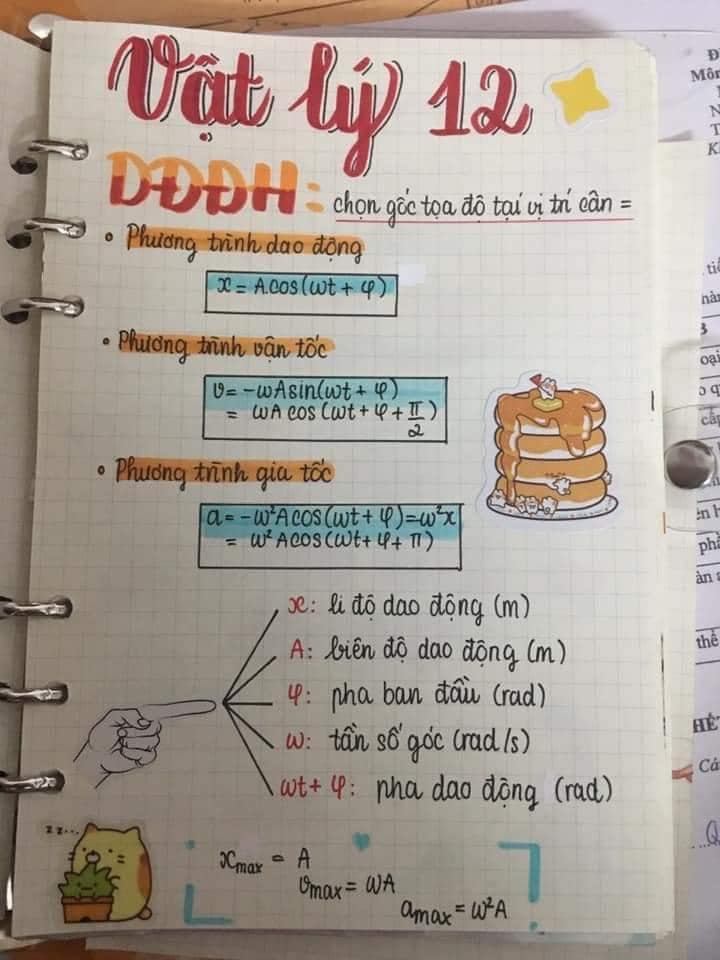 Vật lý 12
DĐĐH: chọn gốc tọa độ tại vị trí cân =
• Phương trình dao động
x = Acos(ωt + φ)
• Phương trình vận tốc
v = -ωAsin(ωt + φ)
= ωA cos(ωt + φ + π/2)
• Phương trình gia tốc
a = -ω²Acos(ωt + φ) = ω²x
= ω²Acos(ωt + φ + π)
x: li độ dao động (m)
A: biên độ dao động (m)
φ: pha ban đầu (rad)
ω: tần số góc (rad/s)
ωt + φ: pha dao động (rad)
zz...
xmax = A
vmax = ωA
amax = ω²A
Môn